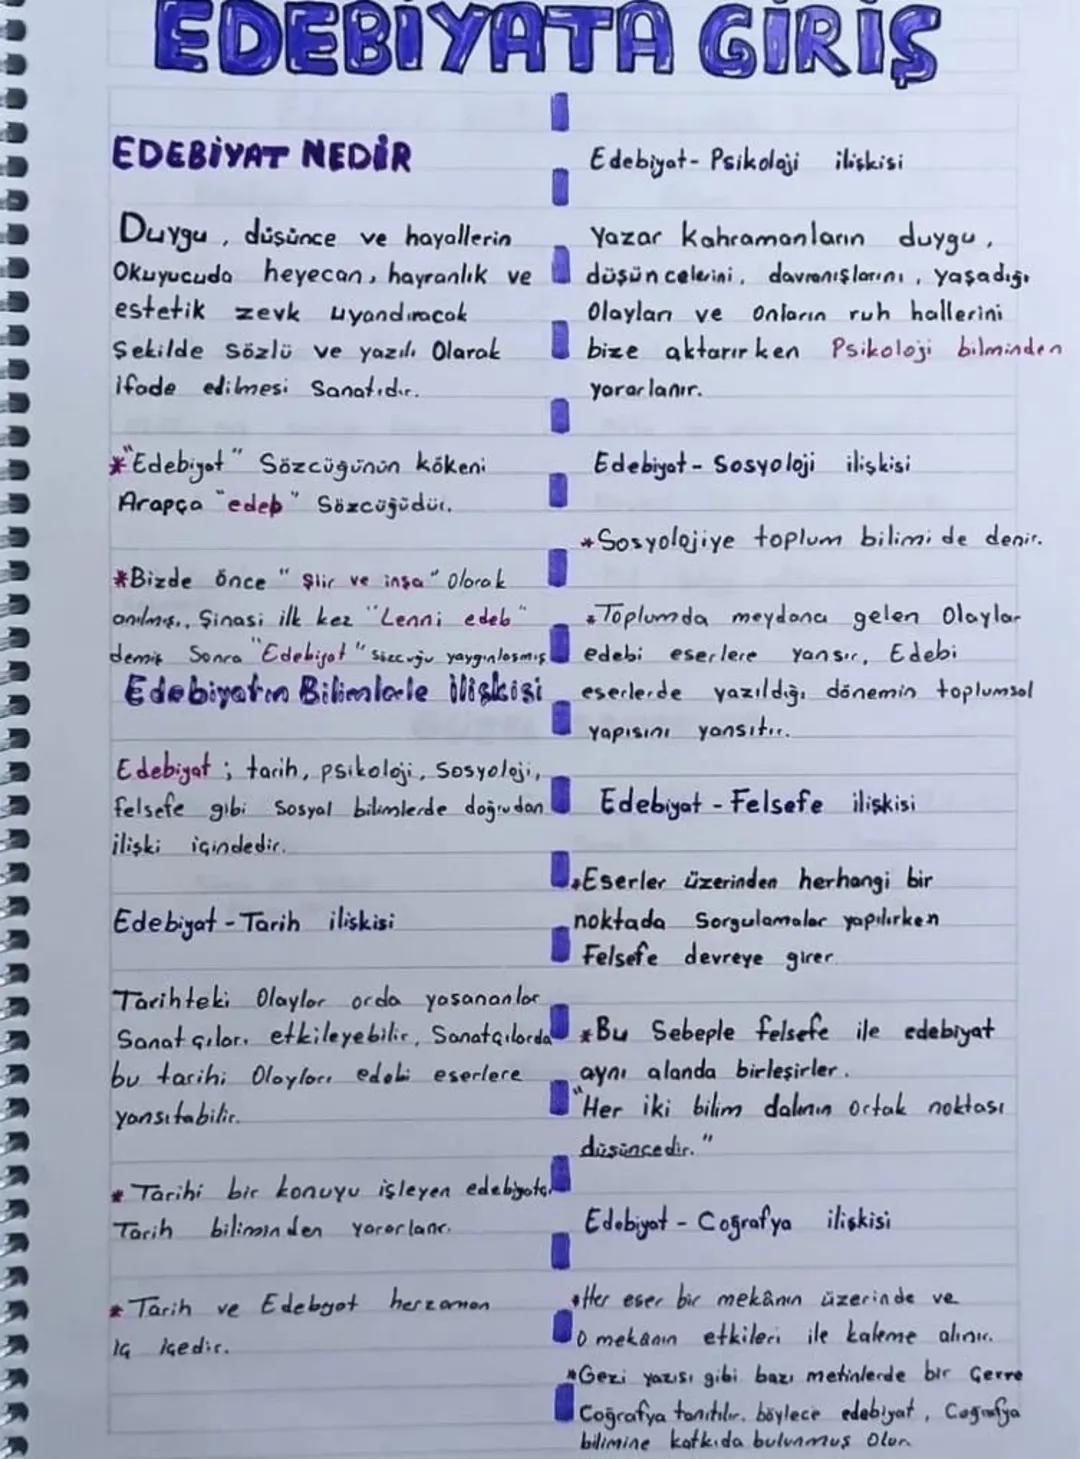 EDEBİYATA GİRİŞ
EDEBİYAT NEDİR
Duygu, düşünce ve hayallerin
Okuyucuda heyecan, hayranlık ve
estetik zevk uyandıracak
Şekilde sözlü ve yazılı Olarak
ifade edilmesi Sanatıdır.
*"Edebiyat" Sözcüğünün kökeni
Arapça "edeb" Sözcüğüdür.
*Bizde önce "Şiir ve inşa" Olarak
anılmış, Şinasi ilk kez "Lenni edeb"
demiş Sonra "Edebiyat" sözcuğu yaygınlaşmış
Edebiyatın Bilimlerle ilişkisi
Edebiyat; tarih, psikoloji, Sosyoloji,
felsefe gibi Sosyal bilimlerde doğrudan
ilişki içindedir.
Edebiyat - Tarih ilişkisi
Tarihteki Olaylar orda yaşananlar
Sanatçıları etkileyebilir, Sanatçılarda
bu tarihi Olayları edebi eserlere
yansıtabilir.
* Tarihi bir konuyu işleyen edebiyatçı
Tarih biliminden yararlanır.
* Tarih ve Edebyat herzaman
iç içedir.
Edebiyat - Psikoloji ilişkisi
Yazar kahramanların duygu,
düşüncelerini, davranışlarını, yaşadığı
Olayları ve onların ruh hallerini
bize aktarırken Psikoloji bilminden
yararlanır.
Edebiyat - Sosyoloji ilişkisi
*Sosyolojiye toplum bilimi de denir.
*Toplumda meydana gelen Olaylar
edebi eserlere yansır, Edebi
eserlerde yazıldığı dönemin toplumsal
yapısını yansıtır.
Edebiyat - Felsefe ilişkisi
*Eserler üzerinden herhangi bir
noktada Sorgulamalar yapılırken
Felsefe devreye girer.
*Bu Sebeple felsefe ile edebiyat
aynı alanda birleşirler.
"Her iki bilim dalının ortak noktası
düşüncedir."
Edebiyat - Coğrafya ilişkisi
*Her eser bir mekânın üzerinde ve
O mekânın etkileri ile kaleme alınır.
*Gezi yazısı gibi bazı metinlerde bir Çevre
Coğrafya tanıtılır. böylece edebiyat, Coğrafya
bilimine katkıda bulunmuş Olur.